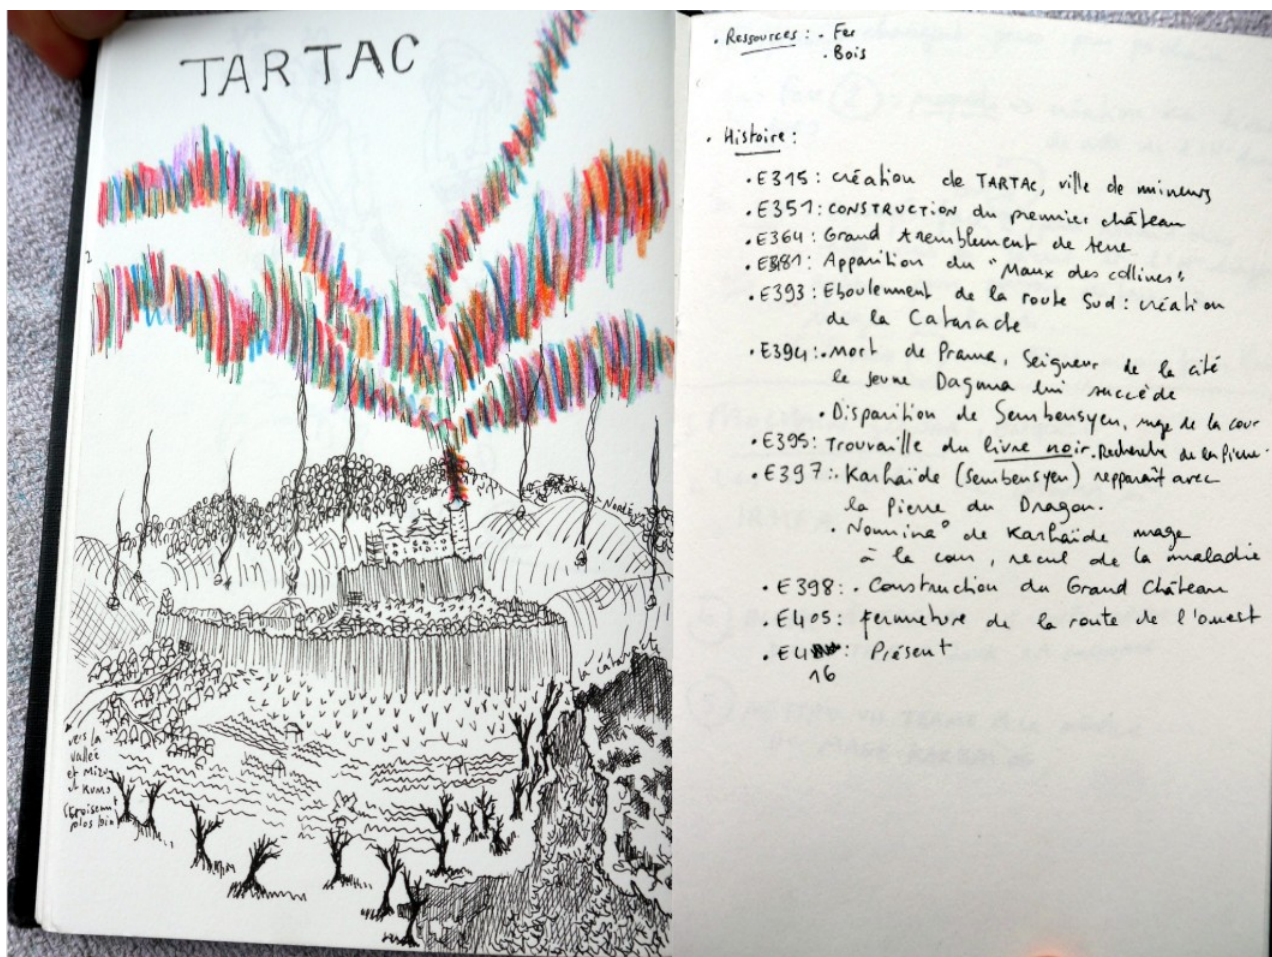 TARTAC
2
Nord
la Cata
vers la
vallée
et Mizu
et KUMO
(croisement
plus loin)
. Ressources : . Fer
. Bois
. Histoire :
. E315 : création de TARTAC, ville de mineurs
. E351 : CONSTRUCTION du premier château
. E364 : Grand tremblement de terre
. E381 : Apparition du "Maux des collines"
. E393 : Eboulement de la route Sud : création
de la Cataracte
. E394 : . Mort de Prama, Seigneur de la cité
le jeune Dagma lui succède
. Disparition de Sembensyen, mage de la cour
. E395 : Trouvaille du livre noir. Recherche de la Pierre.
. E397 : . Karhaïde (Sembensyen) repparaît avec
la Pierre du Dragon.
. Nomina° de Karhaïde mage
à la cour, recul de la maladie
. E398 : . Construction du Grand Château
. E405 : fermeture de la route de l'ouest
. E4 : Présent
16